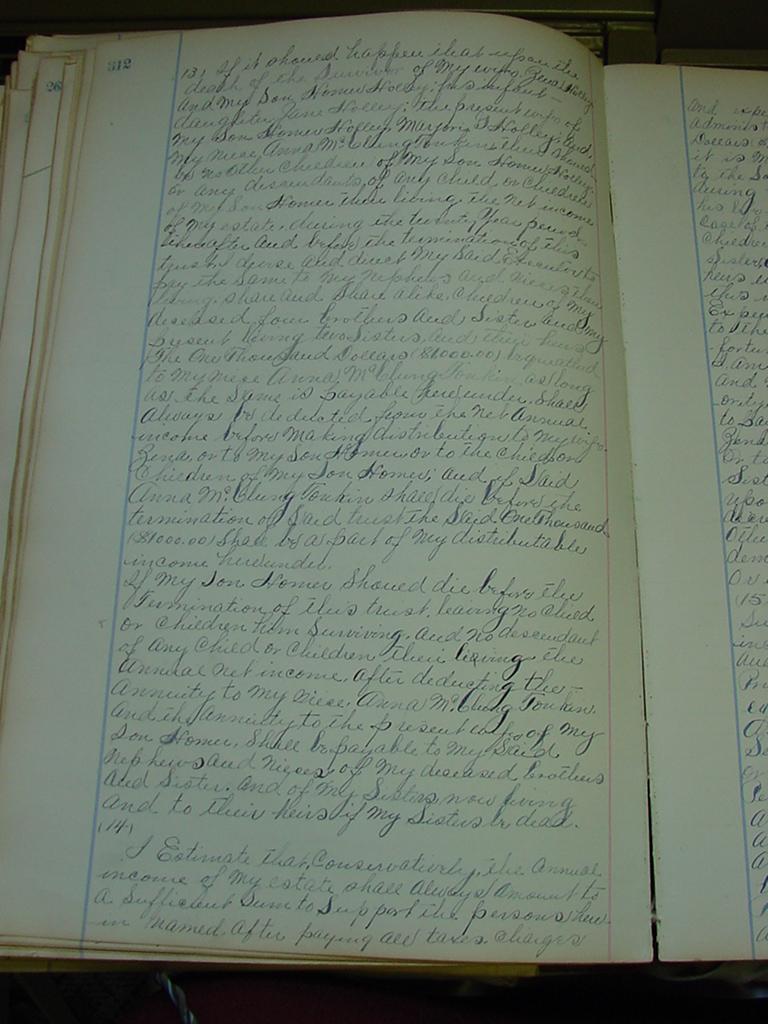 312
26
13) If it should happen that upon the
death of the Survivor of My wife, Zena Holley
and My Son Homer Holley, his
daughter Jane Holley, the present wife of
My Son Homer Holley, Marjorie S Holley, and
My Niece Anna McClung Tonkin, there should
be no other Children of My Son Homer Holley,
or any descendants of any Child or Children
of My Son Homer then living, the net income
of My estate, during the twenty Year period
thereafter and before the termination of this
trust, I devise and direct My Said Executor to
pay the Same to My Nephews and Nieces, then
living, share and Share alike, Children of My
deceased four brothers and Sister and My
present living two Sisters, and their heirs
The One Thousand Dollars ($1000.00) bequeathed
to My Niece Anna McClung Tonkin, as long
as the Same is payable hereunder, Shall
Always be deducted from the Net Annual
income before Making distribution to My wife
Zena, or to My Son Homer or to the Child or
Children of My Son Homer; and if Said
Anna McClung Tonkin Shall die before the
termination of Said trust the Said One Thousand
($1000.00) Shall be as part of My distributable
income hereunder.
If My Son Homer Should die before the
Termination of this trust, leaving No Child
or Children him Surviving, and No descendant
of any Child or Children then living the
Annual Net income, after deducting the
Annuity to My Niece, Anna McClung Tonkin,
and the Annuity to the present wife of My
Son Homer, Shall be payable to My Said
Nephews and Nieces of My deceased brothers
and Sister, and of My Sisters now living
and to their heirs if My Sisters be dead.
(14)
I Estimate that, Conservatively, the Annual
income of My estate shall Always Amount to
a Sufficient Sum to Support the persons here
in Named, after paying all taxes, charges
and expe
administ
Dollars
it is M
to the So
during
his
Case of
Children
Sister
heirs
this
Expen
to the
fortu
I am
and
ority
to Sa
Zena
Or to
Sist
upo
decre
Othe
dem
Or
(15
Su
inc